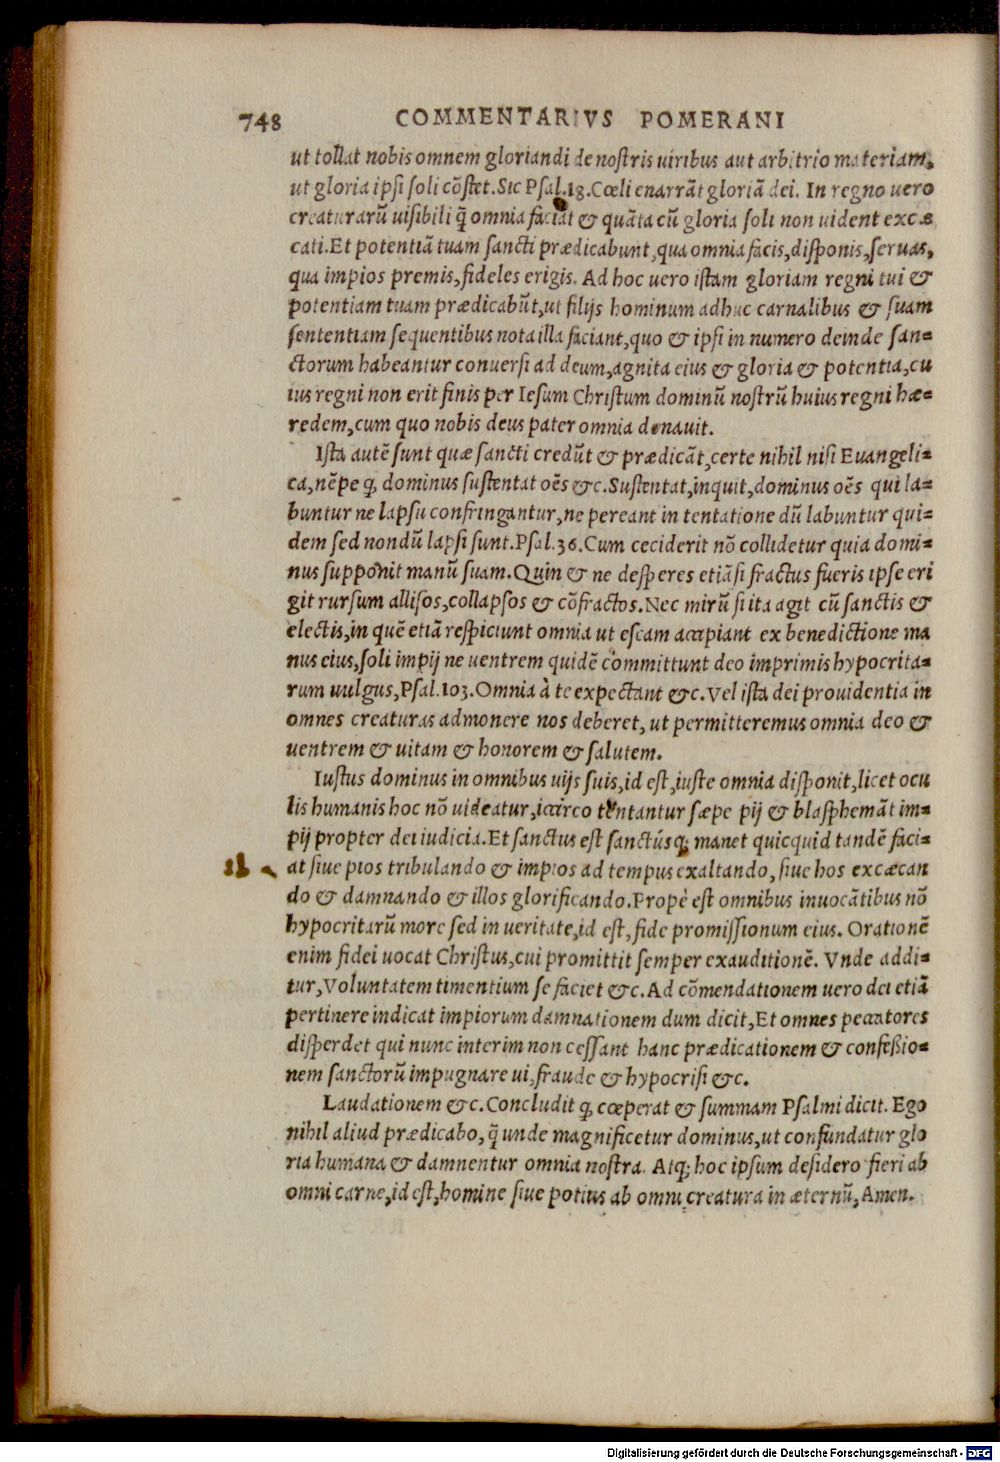 748 COMMENTARIVS POMERANI
ut tollat nobis omnem gloriandi de nostris uiribus aut arbitrio materiam,
ut gloria ipsi soli cōstet. Sic Psal.18. Cœli enarrāt gloriā dei. In regno uero
creaturarū uisibili q̄ omnia faciāt & quāta cū gloria soli non uident excæ
cati. Et potentiā tuam sancti prædicabunt, qua omnia facis, disponis, seruas,
qua impios premis, fideles erigis. Ad hoc uero istam gloriam regni tui &
potentiam tuam prædicabūt, ut filijs hominum adhuc carnalibus & suam
sententiam sequentibus nota illa faciant, quo & ipsi in numero deinde san=
ctorum habeantur conuersi ad deum, agnita eius & gloria & potentia, cu
ius regni non erit finis per Iesum Christum dominū nostrū huius regni hæ=
redem, cum quo nobis deus pater omnia donauit.
Ista autē sunt quæ sancti credūt & prædicāt, certe nihil nisi Euangeli=
ca, nēpe ꝙ dominus sustentat oēs &c. Sustentat, inquit, dominus oēs qui la=
buntur ne lapsu confringantur, ne pereant in tentatione dū labuntur qui=
dem sed nondū lapsi sunt. Psal.36. Cum ceciderit nō collidetur quia domi=
nus supponit manū suam. Quin & ne desperes etiāsi fractus fueris ipse eri
git rursum allisos, collapsos & cōfractos. Nec mirū si ita agit cū sanctis &
electis, in quē etiā respiciunt omnia ut escam accipiant ex benedictione ma
nus eius, soli impij ne uentrem quidē committunt deo imprimis hypocrita=
rum uulgus, Psal.103. Omnia à te expectant &c. Vel ista dei prouidentia in
omnes creaturas admonere nos deberet, ut permitteremus omnia deo &
uentrem & uitam & honorem & salutem.
Iustus dominus in omnibus uijs suis, id est, iuste omnia disponit, licet ocu
lis humanis hoc nō uideatur, icirco tentantur sæpe pij & blasphemāt im=
pij propter dei iudicia. Et sanctus est sanctúsq; manet quicquid tandē faci=
at siue pios tribulando & impios ad tempus exaltando, siue hos excæcan
do & damnando & illos glorificando. Propè est omnibus inuocātibus nō
hypocritarū more sed in ueritate, id est, fide promissionum eius. Orationē
enim fidei uocat Christus, cui promittit semper exauditionē. Vnde addi=
tur, Voluntatem timentium se faciet &c. Ad cōmendationem uero dei etiā
pertinere indicat impiorum damnationem dum dicit, Et omnes peccatores
disperdet qui nunc interim non cessant hanc prædicationem & confessio=
nem sanctorū impugnare ui, fraude & hypocrisi &c.
Laudationem &c. Concludit ꝙ cœperat & summam Psalmi dicit. Ego
nihil aliud prædicabo, q̄ unde magnificetur dominus, ut confundatur glo
ria humana & damnentur omnia nostra. Atq; hoc ipsum desidero fieri ab
omni carne, id est, homine siue potius ab omni creatura in æternū, Amen.
Digitalisierung gefördert durch die Deutsche Forschungsgemeinschaft - DFG